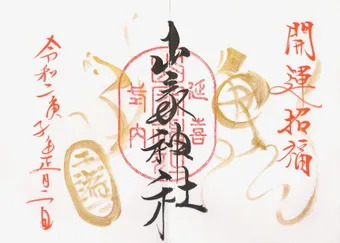 開運招福
山家神社
延喜
式内
令和二庚子年正月二日